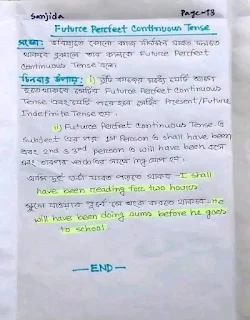 Sanjida
Page-13
Future Percfect Continuous Tense
সংজ্ঞা: ভবিষ্যতে কোনো কাজ নির্দিষ্ট সময় ধরে চলতে
থাকবে বুঝালে তার কালকে Future Percfect
Continuous Tense বলে।
চিনবার উপায়: i) দুটি কাজের মধ্যে যেটি আগে
হতে থাকবে সেটির Future Percfect Continuous
Tense এবং যেটি পরে হবে সেটির Present/Future
Indefinite Tense হয়।
ii) Future Percfect Continuous Tense এ
Subject এর পর 1st Person এ shall have been
এবং 2nd ও 3rd person এ will have been বসে
এবং তারপর verb এর সাথে ing যোগ হয়।
আমি দুই ঘন্টা যাবত পড়তে থাকব - I shall
have been reading for two hours
স্কুলে যাওয়ার পূর্বে সে অংক করতে থাকবে - He
will have been doing sums before he goes
to school.
— END —